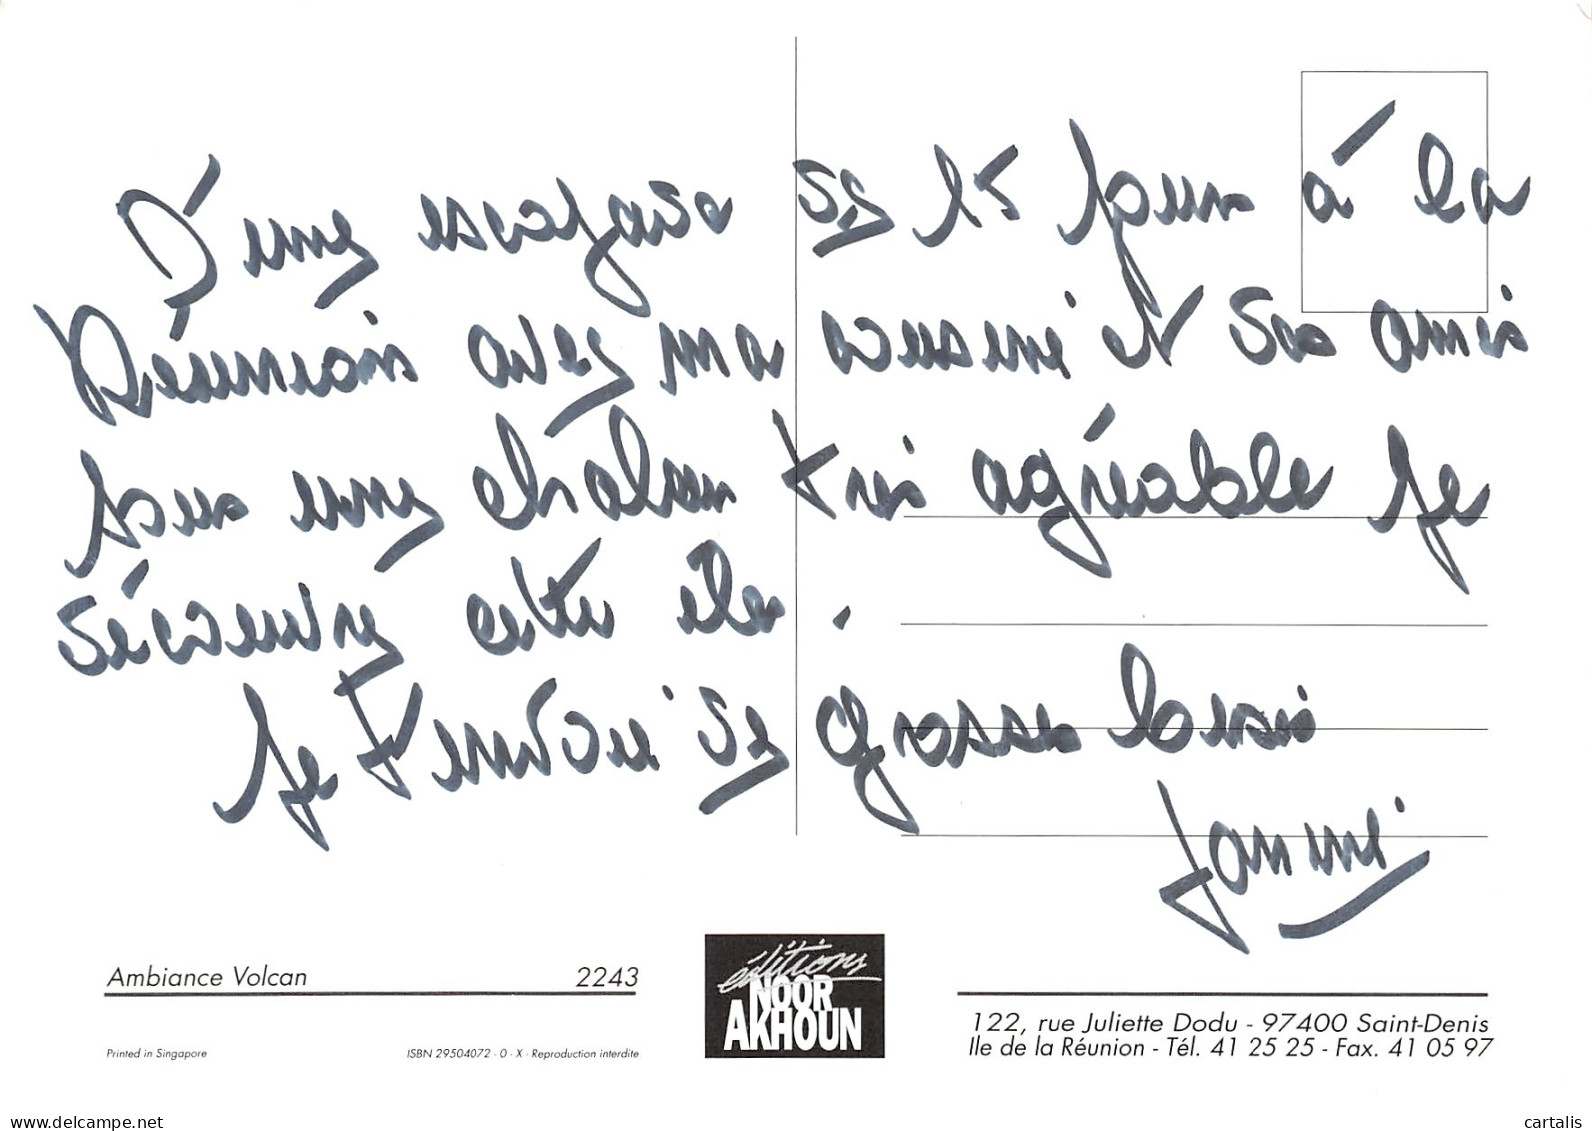 D'une escapade de 15 jours à la
Réunion avec ma cousine et ses amis
sous une chaleur très agréable je
découvre cette île.
Je t'envoie de grosses bises
Ambiance Volcan 2243
éditions
NOOR
AKHOUN
122, rue Juliette Dodu - 97400 Saint-Denis
Ile de la Réunion - Tél. 41 25 25 - Fax. 41 05 97
Printed in Singapore
ISBN 29504072 - 0 - X - Reproduction interdite
www.delcampe.net
cartalis